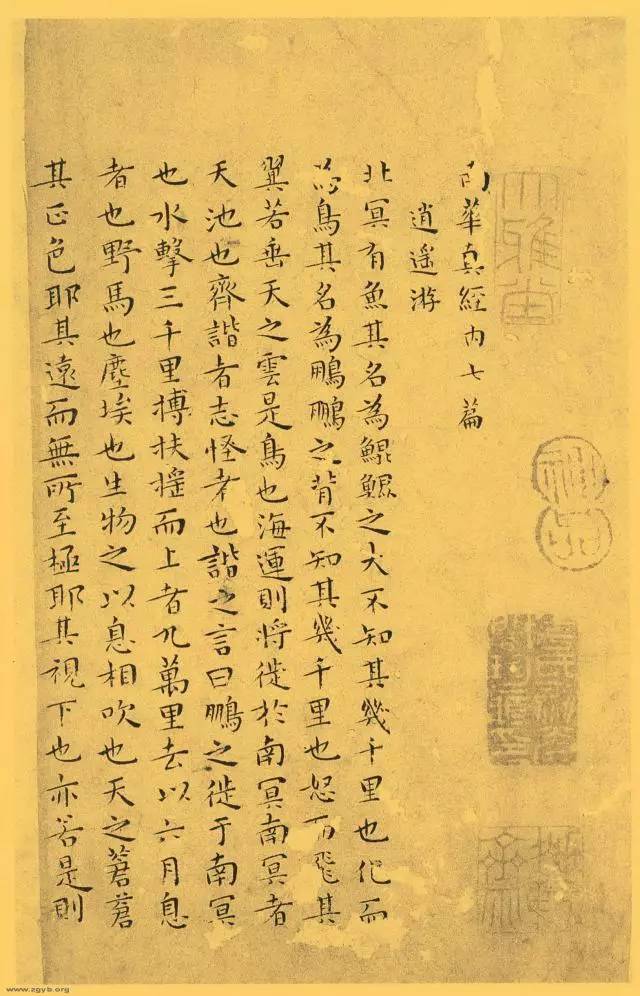 大雅堂
神品
南華真經内七篇
逍遥游
北冥有魚其名為鯤鯤之大不知其幾千里也化而
為鳥其名為鵬鵬之背不知其幾千里也怒而飛其
翼若垂天之雲是鳥也海運則將徙於南冥南冥者
天池也齊諧者志怪者也諧之言曰鵬之徙于南冥
也水擊三千里搏扶搖而上者九萬里去以六月息
者也野馬也塵埃也生物之以息相吹也天之蒼蒼
其正色耶其遠而無所至極耶其視下也亦若是則
www.zgyb.org